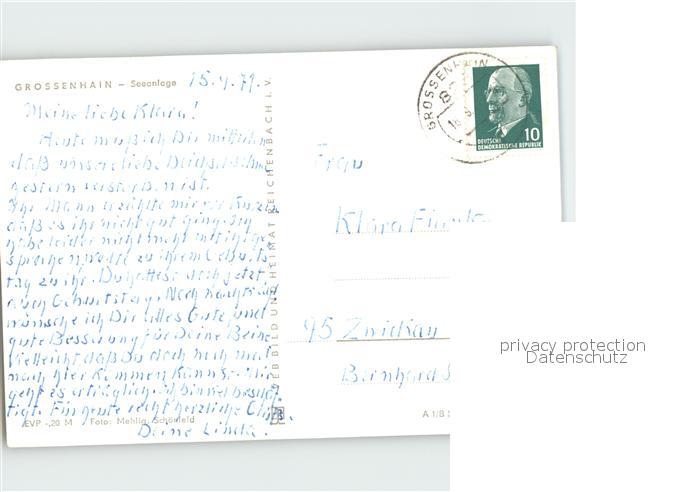 GROSSENHAIN – Seeanlage 15.4.71.
Meine liebe Klara!
Heute muß ich Dir mitteilen
daß unsere liebe
gestern verstorben ist.
Ihr Mann erzählte mir vor kurz
daß es ihr nicht gut ging. Ich
habe leider nicht mehr mit ihr ge
sprochen, wollte zu ihrem Geburts
tag zu ihr. Du hattest doch jetzt
auch Geburtstag. Noch nachträg
wünsche ich Dir alles Gute und
gute Besserung für Deine Beine
Vielleicht, daß Du doch noch mal
nach hier kommen kannst. Mir
geht es erträglich. Ich bin viel beschäf
tigt. Für heute recht herzliche
Deine Linda.
EVP -,20 M Foto: Mehlig, Schönfeld
VEB BILD UND HEIMAT REICHENBACH I. V.
GROSSENHAIN
10
DEUTSCHE
DEMOKRATISCHE REPUBLIK
Frau
Klara
95 Zwickau
Bernhard S
A 1/B
privacy protection
Datenschutz